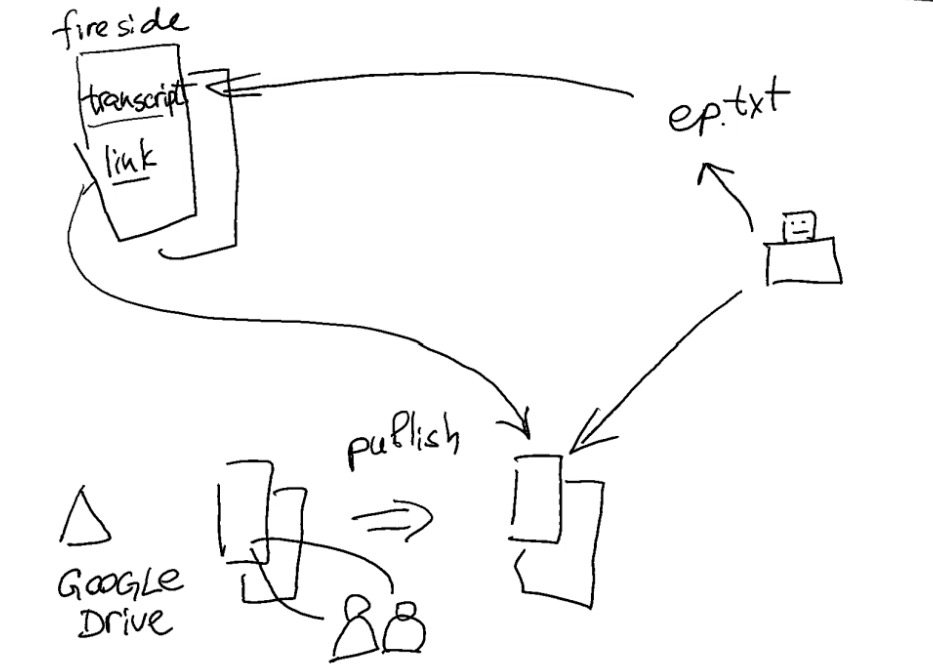 fireside
transcript
link
ep.txt
publish
GOOGLE
Drive